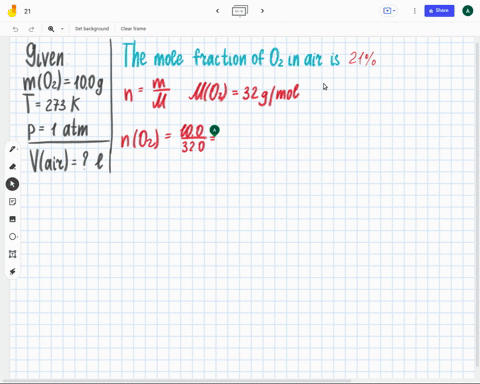 21
Set background
Clear frame
Share
A
Given
m(O₂)=10.0g
T=273 K
p=1 atm
V(air)=? l
The mole fraction of O₂ in air is 21%
n = m/M M(O₂)=32g/mol
n(O₂) = 10.0/32.0 =
A